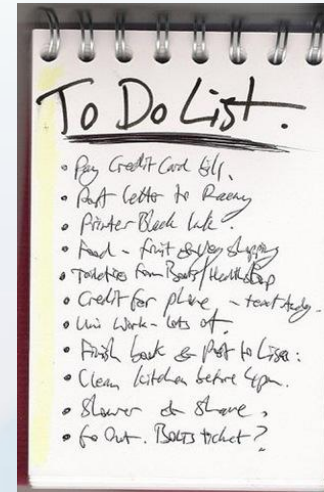 To Do List.
• Pay Credit Card bill,
• Post letter to
• Printer Black Ink.
• Food - fruit & veg shopping
• Toiletries from Boots/
• Credit for phone - text
• Uni Work - lots of.
• Finish book & Post to Lisa:
• Clean kitchen before 4pm.
• Shower & Shave,
• Go Out. ticket?